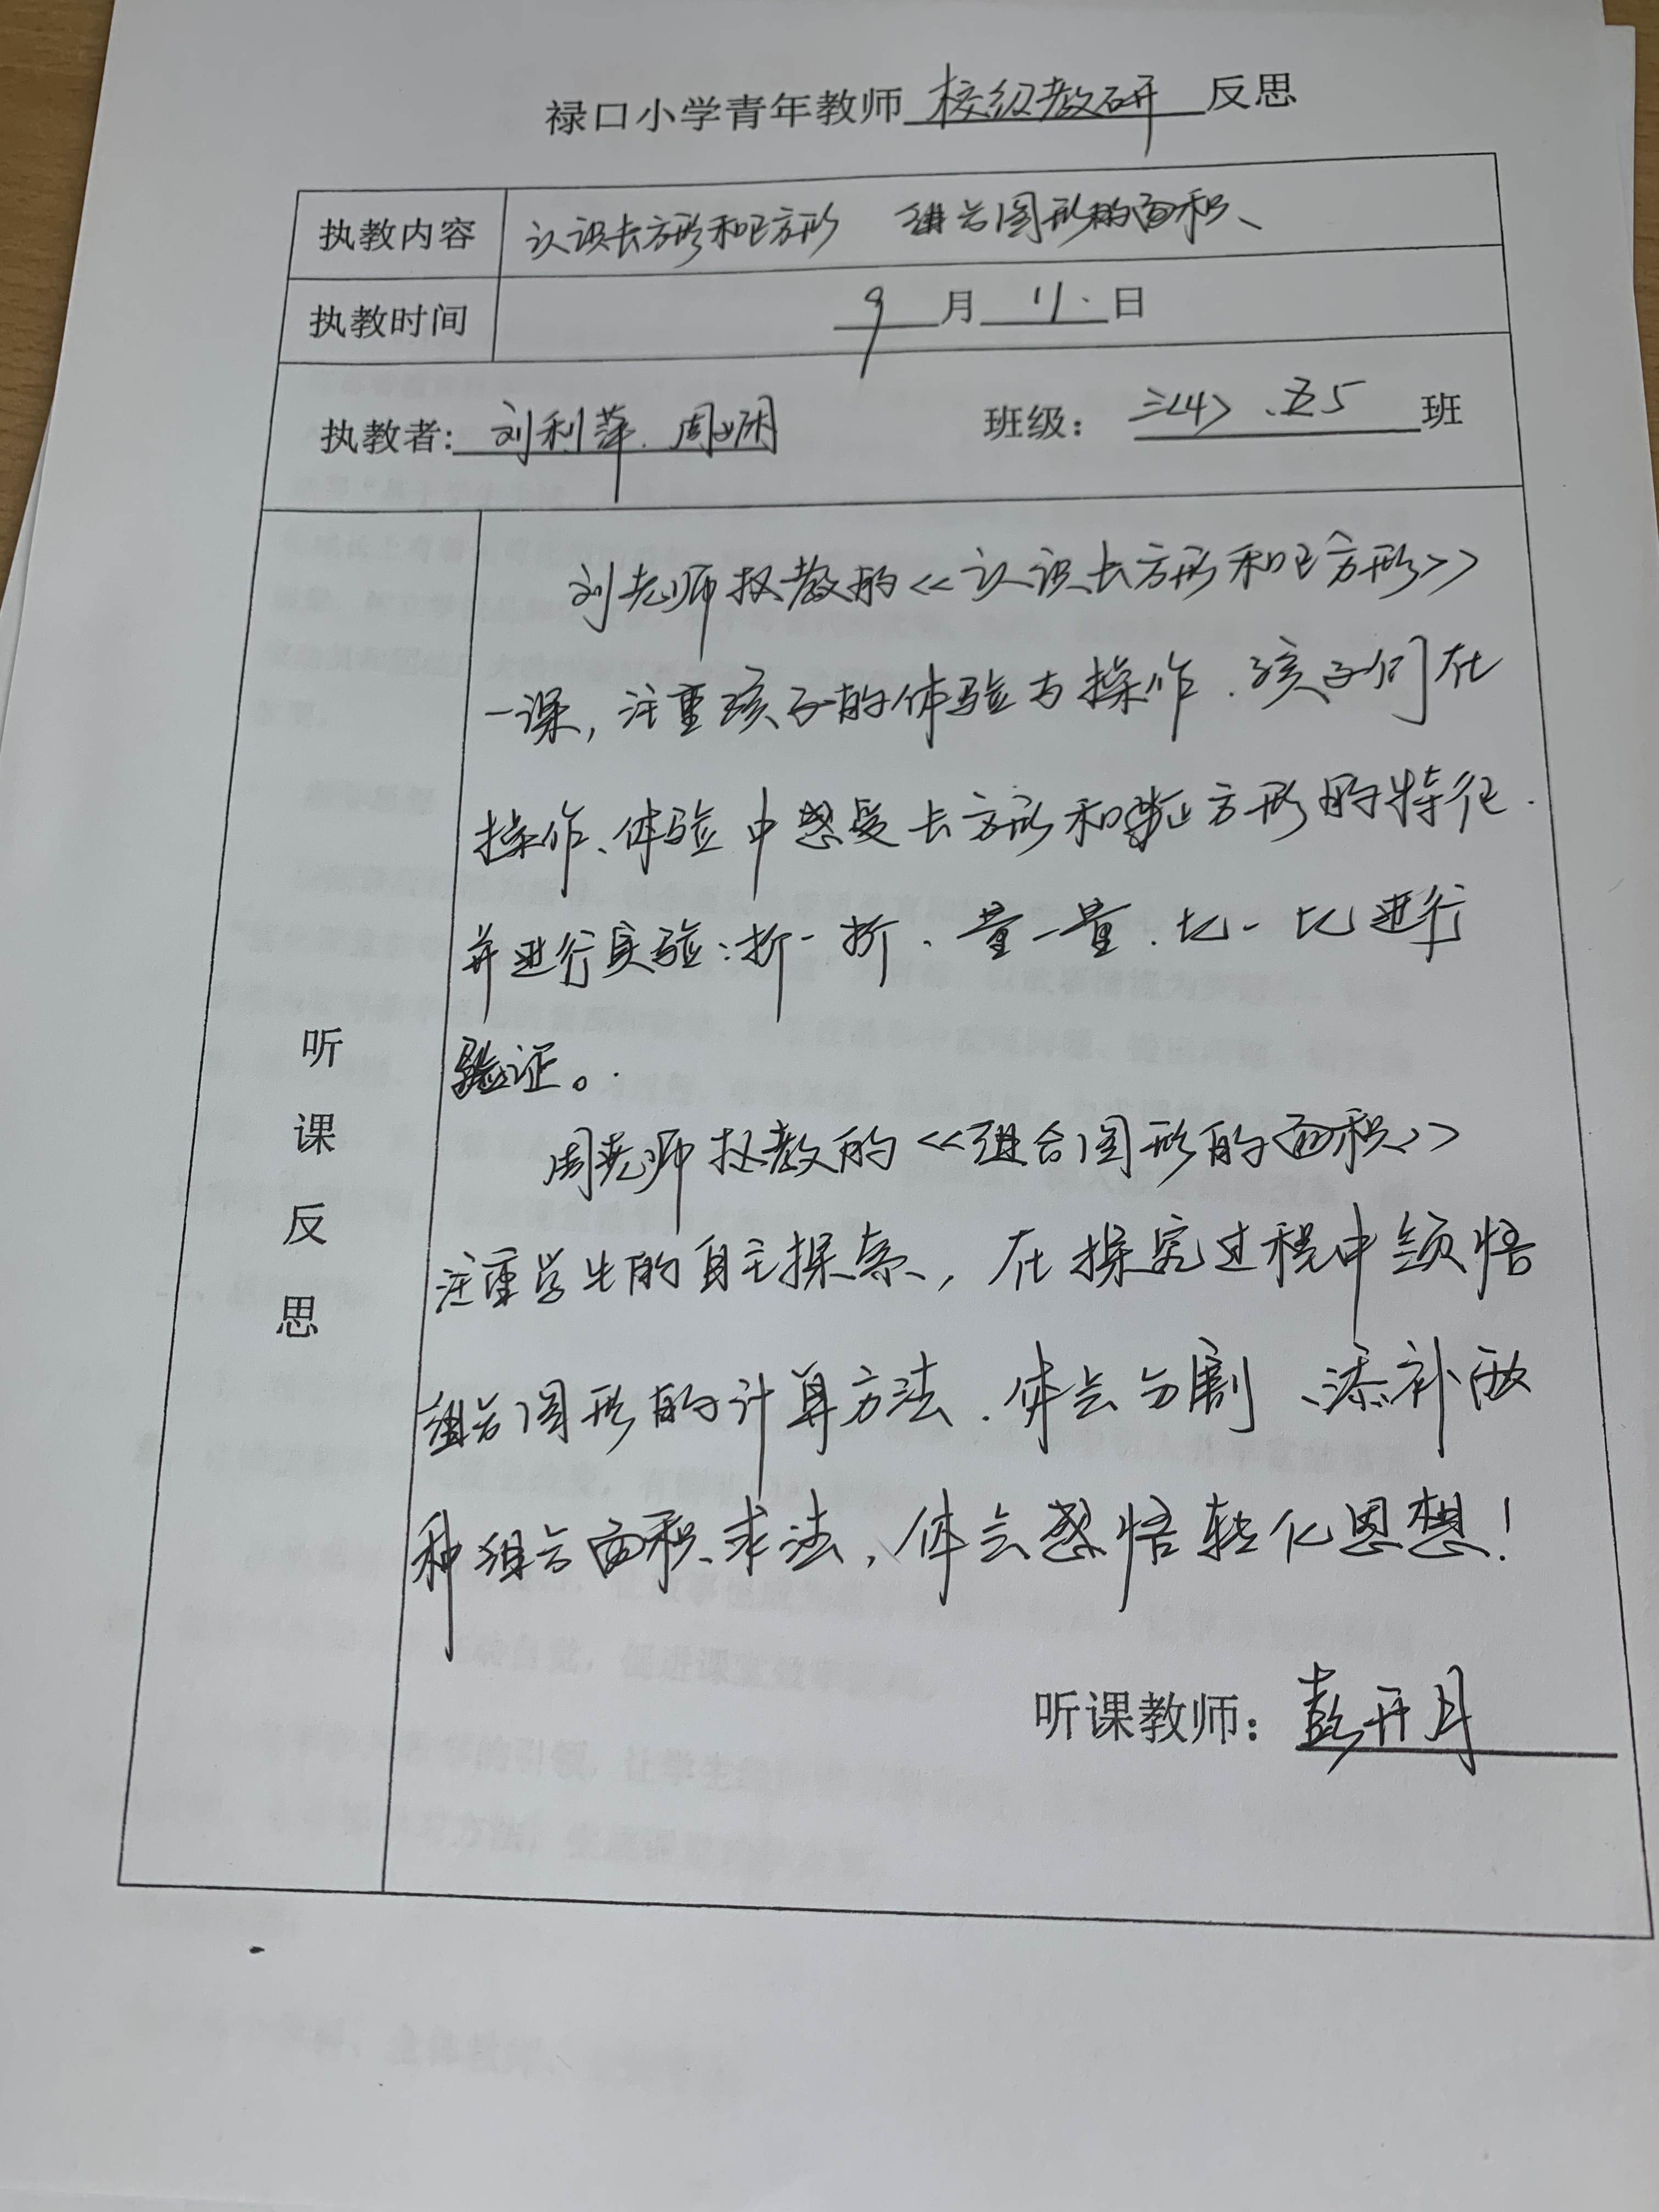 禄口小学青年教师校级教研反思
执教内容 认识长方形和正方形 组合图形的面积
执教时间 9月11日
执教者: 刘利萍、周 班级: 三<4>、五5班
听课反思
刘老师执教的<<认识长方形和正方形>>
一课, 注重孩子的体验与操作. 孩子们在
操作、体验中感受长方形和正方形的特征.
并进行实验: 折一折、量一量、比一比进行
验证。
周老师执教的<<组合图形的面积>>
注重学生的自主探索, 在探究过程中领悟
组合图形的计算方法. 体会分割、添补两
种组合面积求法, 体会感悟转化思想!
听课教师: 彭开月